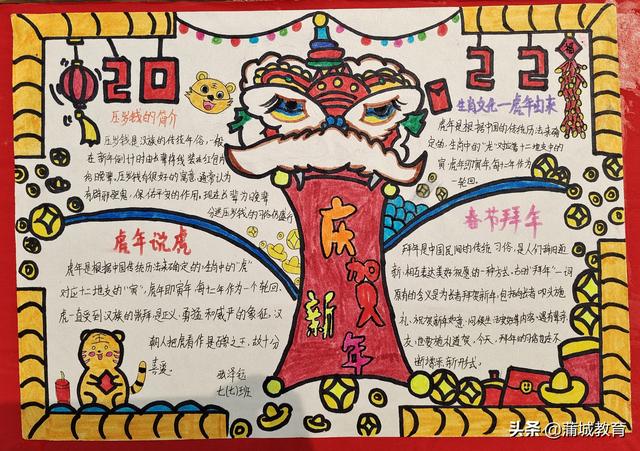 20
22
福
压岁钱的简介
压岁钱是汉族的传统年俗,一般
在新年倒计时由长辈将钱装在红包内
给晚辈。压岁钱有很好的寓意,通常认为
有辟邪驱鬼,保佑平安的作用。现在长辈为晚辈
分送压岁钱的习俗仍盛行
生肖文化—虎年由来
虎年是根据中国的传统历法来确
定的,生肖中的"虎"对应着十二地支中的
寅,虎年即寅年,每十二年作为
一轮回。
虎年说虎
虎年是根据中国传统历法来确定的,生肖中的"虎"
对应十二地支的"寅",虎年即寅年,每十二年作为一个轮回。
虎一直受到汉族的崇拜,是正义、勇猛和威严的象征,汉
朝人把虎看作是百兽之王,故十分
喜爱。
七(七)班
庆贺新年
春节拜年
拜年是中国民间的传统习俗,是人们辞旧迎
新、相互表达美好祝愿的一种方式。古时"拜年"一词
原有的含义是为长者拜贺新年,包括向长者叩头施
礼、祝贺新年如意、问候生活安好等内容。遇有亲
友,也要施礼道贺。今天,拜年的习俗在不
断增添新形式。
头条@蒲城教育